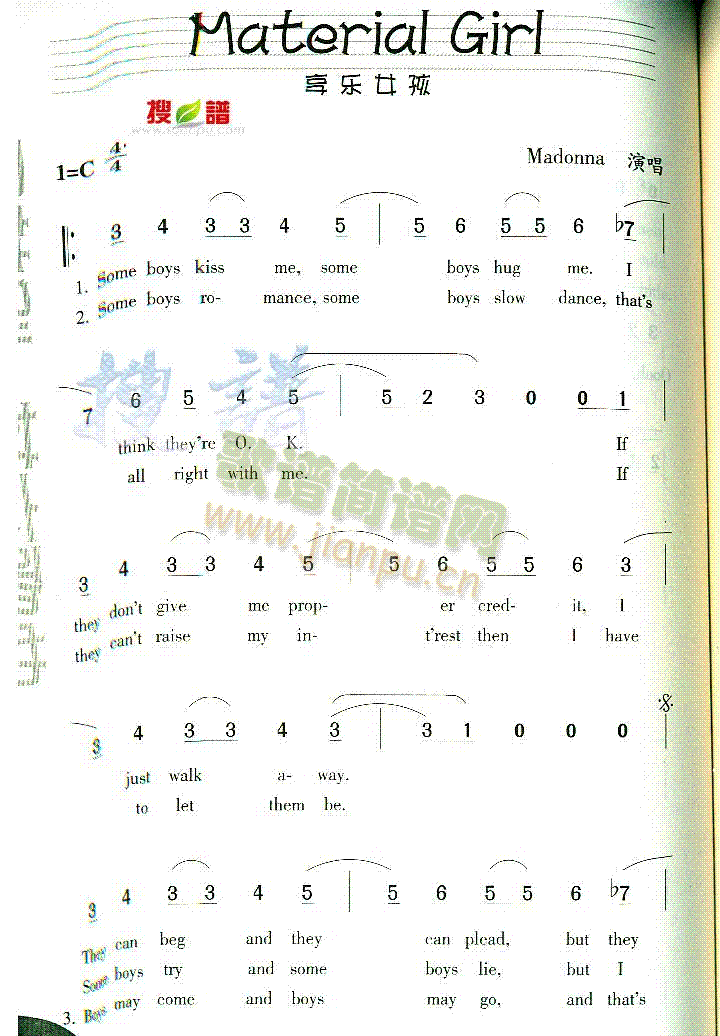 Material Girl
享乐女孩
搜 譜
www.sooopu.com
1=C 4/4
Madonna 演唱
3 4 3 3 4 5 | 5 6 5 5 6 ♭7
1. Some boys kiss me, some boys hug me. I
2. Some boys ro- mance, some boys slow dance, that's
7 6 5 4 5 | 5 2 3 0 0 1
think they're O. K. If
all right with me. If
搜 譜
歌谱简谱网
www.jianpu.cn
3 4 3 3 4 5 | 5 6 5 5 6 3
they don't give me prop- er cred- it, I
they can't raise my in- t'rest then I have
3 4 3 3 4 3 | 3 1 0 0 0
just walk a- way.
to let them be.
3 4 3 3 4 5 | 5 6 5 5 6 ♭7
They can beg and they can plead, but they
Some boys try and some boys lie, but I
3. Boys may come and boys may go, and that's